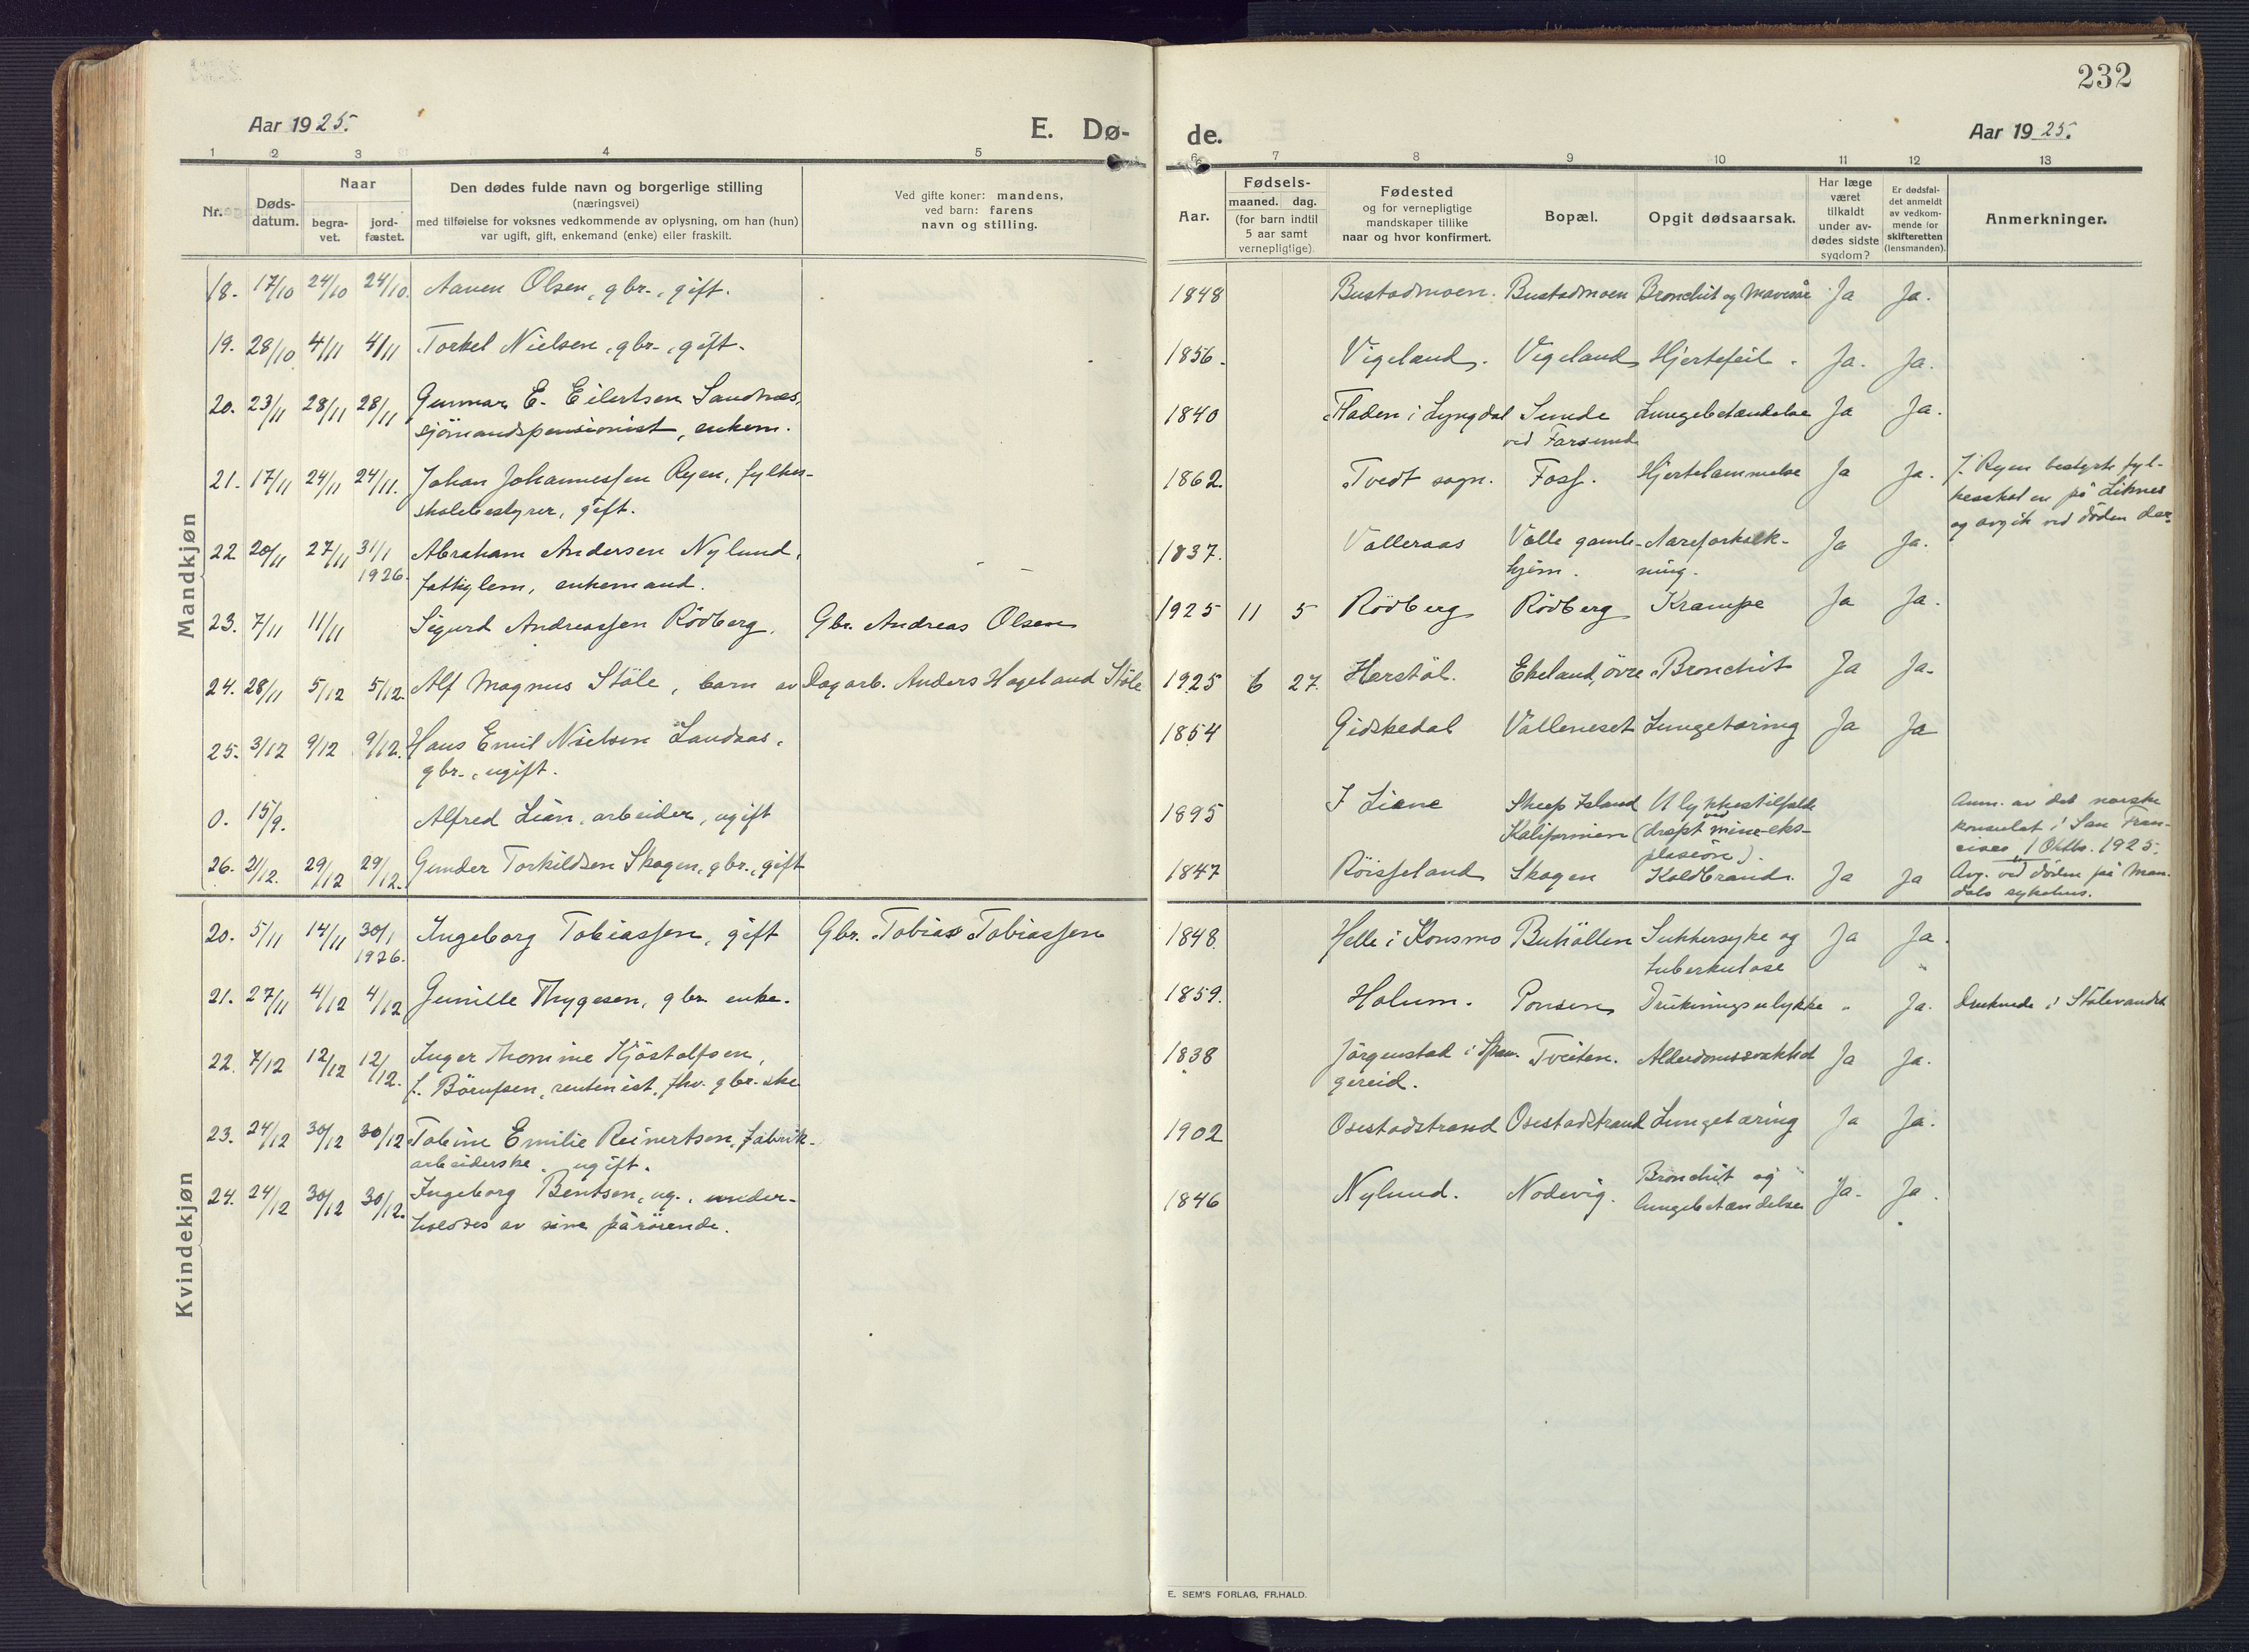 232
Aar 1925.
E. Dø-
de.
Aar 1925.
1 2 3 4 5 6 7 8 9 10 11 12 13
Nr.
Døds-
datum.
Naar
begra-
vet.
jord-
fæstet.
Den dødes fulde navn og borgerlige stilling
(næringsvei)
med tilføielse for voksnes vedkommende av oplysning, om han (hun)
var ugift, gift, enkemand (enke) eller fraskilt.
Ved gifte koner: mandens,
ved barn: farens
navn og stilling.
Aar.
Fødsels-
maaned. dag.
(for barn indtil
5 aar samt
vernepligtige).
Fødested
og for vernepligtige
mandskaper tillike
naar og hvor konfirmert.
Bopæl.
Opgit dødsaarsak.
Har læge
været
tilkaldt
under av-
dødes sidste
sygdom?
Er dødsfal-
det anmeldt
av vedkom-
mende for
skifteretten
(lensmanden).
Anmerkninger.
Mandkjøn
18. 17/10 24/10 24/10. Aanen Olsen, gbr., gift. 1848 Bustadmoen. Bustadmoen Bronchit og Mavesår Ja Ja.
19. 28/10 4/11 4/11 Torkel Nielsen, gbr., gift. 1856. Vigeland. Vigeland Hjertefeil. Ja. Ja.
20. 23/11 28/11 28/11 Gunnar E. Eilertsen Sandnes, 1840 Fladen i Lyngdal Sunde Lungebetændelse Ja Ja.
sjømandspensionist, enkem. ved Farsund
21. 17/11 24/11 24/11. Johan Johannessen Ryen, fylkes- 1862. Tvedt sogn. Foss. Hjertelammelse Ja Ja. J. Ryen bestyrte fyl-
skolebestyrer, gift. kesskolen på Liknes
og avgik ved døden der.
22 20/11 27/11 31/1 Abraham Andersen Nylund, 1837. Valleraas Valle gamle- Aareforkalk- Ja Ja.
1926. fattiglem, enkemand. hjem. ning.
23. 7/11 11/11 Sigurd Andreassen Rödberg, Gbr. Andreas Olsen 1925 11 5 Rödberg Rödberg Krampe Ja Ja.
24. 28/11 5/12 5/12. Alf Magnus Stöle, barn av Dagarb. Anders Hageland Stöle 1925 6 27. Harstöl. Ekeland, övre Bronchit Ja Ja.
25. 3/12 9/12 9/12. Hans Emil Nielsen Landaas, 1854 Gidskedal Valleneset Lungetæring Ja Ja
gbr., ugift.
0. 15/9. Alfred Lian, arbeider, ugift 1895 Liane Sheep Island Ulykkestilfælde Anm. av det norske
Kalifornien (dræpt ved mine-eks- konsulat i San Fran-
plosion). cisco 1 Oktb. 1925.
26. 21/12. 29/12 29/12. Gunder Torkildsen Skogen, gbr., gift 1847 Röisseland Skogen Koldbrand. Ja Ja Avg. ved døden på Man-
dals sykehus.
Kvindekjøn
20. 5/11 14/11 30/1 Ingeborg Tobiassen, gift Gbr. Tobias Tobiassen 1848. Helle i Konsmo Buhöllen Sukkersyke og Ja Ja.
1926. tuberkulose
21. 27/11 4/12 4/12 Gunille Thygesen, gbr. enke. 1859. Holum. Ponsen Drukningsulykke " Ja. Druknede i Stölevandet
22. 7/12 12/12 12/12. Inger Thomine Hjöstolfsen, 1838 Jörgenstad i Span- Tveiten. Alderdomssvakhet Ja Ja.
f. Börufsen, rentenist, fhv. gbr.ske gereid.
23. 24/12 30/12 30/12 Tobine Emilie Reinertsen, fabrik- 1902 Osestadstrand Osestadstrand Lungetæring Ja Ja.
arbeiderske, ugift.
24. 24/12 30/12 30/12. Ingeborg Bentsen, ug., under- 1846 Nylund. Nodevig. Bronchit og Ja. Ja.
holdtes av sine pårörende. lungebetændelse
E. SEM'S FORLAG, FR.HALD.